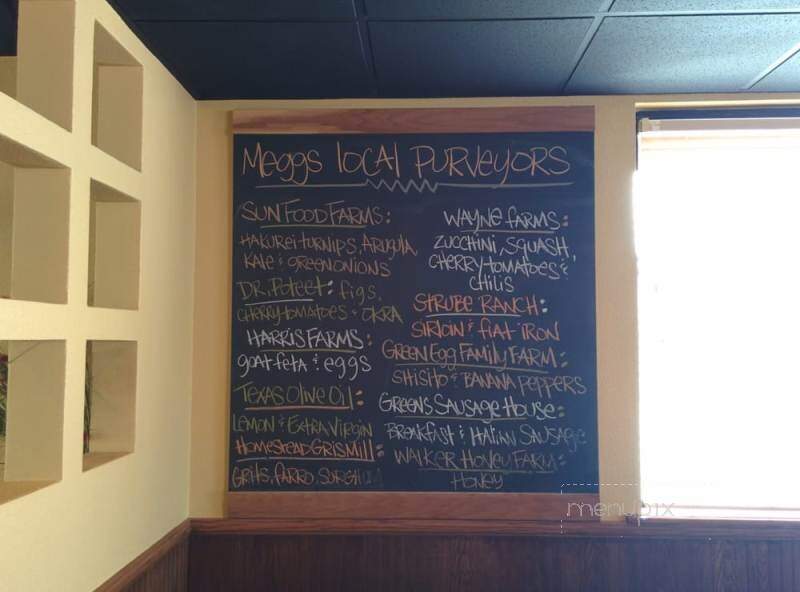 Meggs local PURVEYORS
SUN FOOD FARMS:
HAKUREI TURNIPS, ARUGULA,
KALE & GREEN ONIONS
DR. Poteet: figs,
CHERRY TOMATOES & OKRA
HARRIS FARMS:
goat feta & eggs
TEXAS Olive Oil:
LEMON & EXTRA VIRGIN
HOMESTEAD GRISMILL:
GRITS, FARRO, SORGHUM
WAYNE FARMS:
ZUCCHINI, SQUASH,
CHERRY TOMATOES &
CHILIS
STRUBE RANCH:
SIRLOIN & flAT IRON
GREEN Egg FAMILY FARM:
SHISHITO & BANANA PEPPERS
GREENS SAUSAGE HOUSE:
BREAKFAST & ITALIAN SAUSAGE
WALKER HONEY FARM:
HONEY
menupix